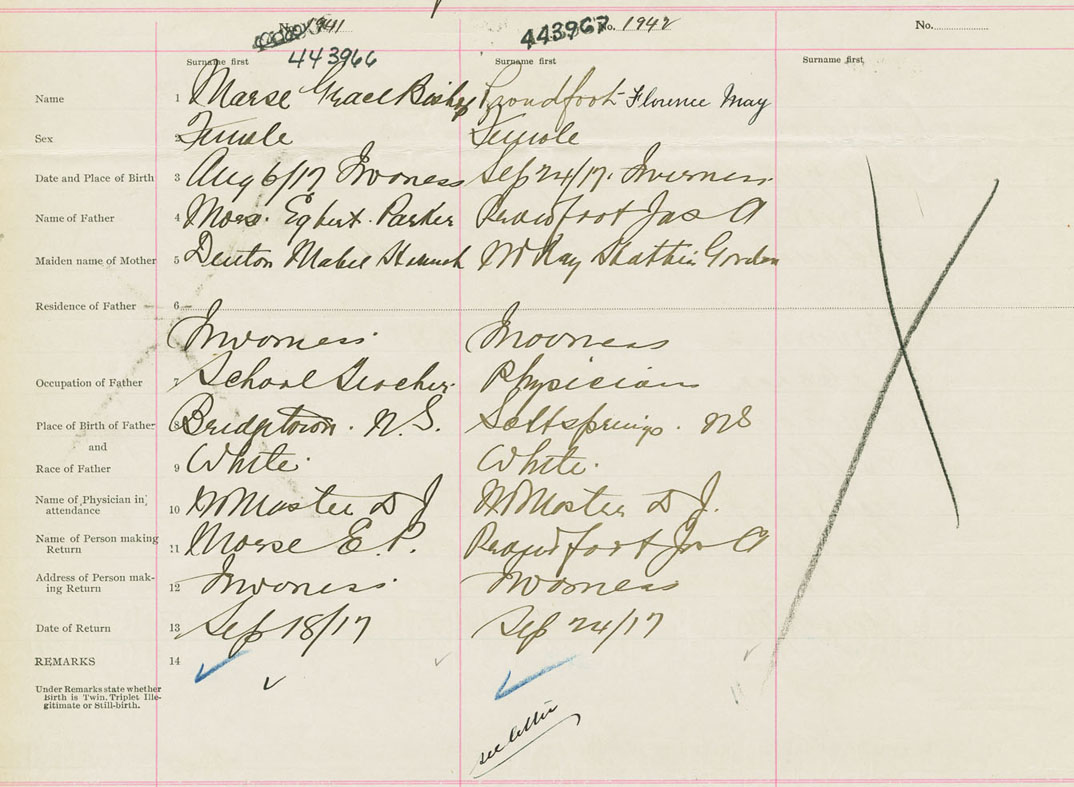 No. 1941
443966
443967 No. 1942
No.
Surname first
Surname first
Surname first
Name 1 Morse Grace Bishop Proudfoot Florence May
Sex 2 Female Female
Date and Place of Birth 3 Aug 6/17 Inverness Sep 24/17. Inverness
Name of Father 4 Morse. Egbert. Parker Proudfoot Jas A
Maiden name of Mother 5 Denton Mabel Hannah McKay Gordon
Residence of Father 6
Inverness Inverness
Occupation of Father 7 School Teacher Physician
Place of Birth of Father 8 Bridgetown. N.S. Saltsprings. NS
and
Race of Father 9 White White.
Name of Physician in attendance 10 McMaster D J McMaster D J.
Name of Person making Return 11 Morse E.P. Proudfoot Jas A
Address of Person mak-
ing Return 12 Inverness Inverness
Date of Return 13 Sep 18/17 Sep 24/17
REMARKS 14
Under Remarks state whether
Birth is Twin, Triplet Ille-
gitimate or Still-birth.